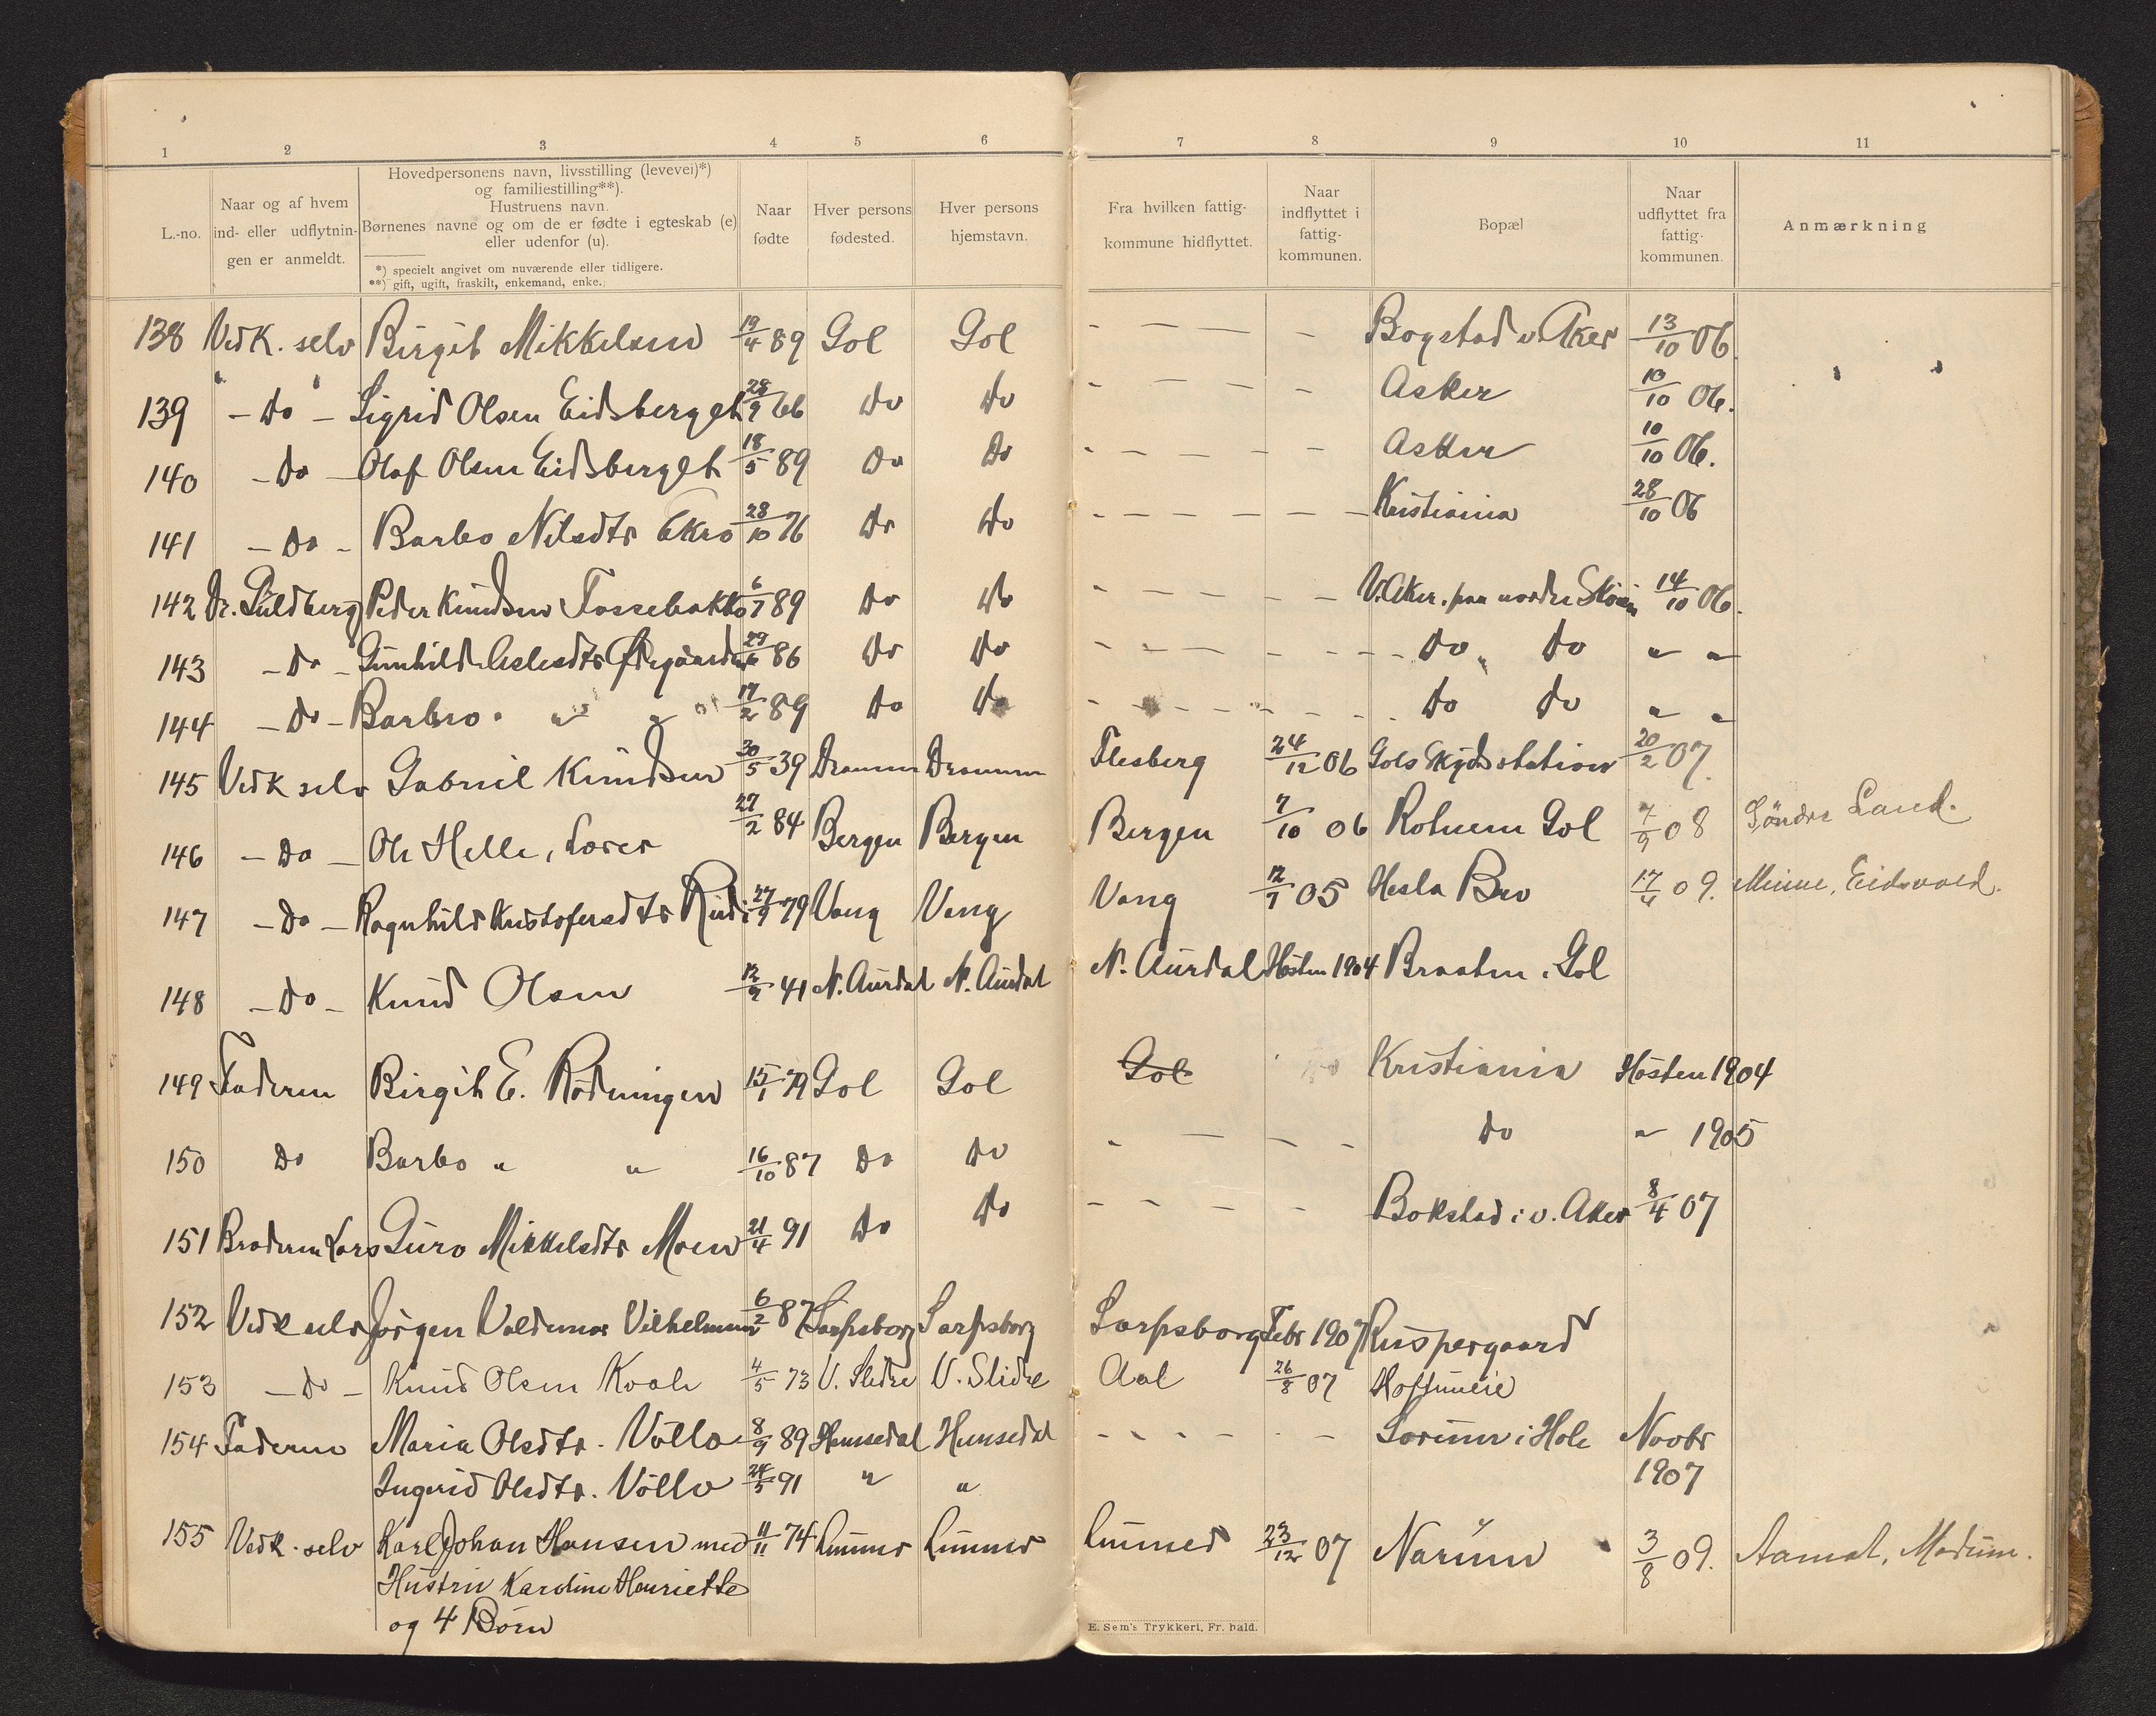 1 2 3 4 5 6 7 8 9 10 11
L.-no.
Naar og af hvem
ind- eller udflytnin-
gen er anmeldt.
Hovedpersonens navn, livsstilling (levevei)*)
og familiestilling**).
Hustruens navn.
Børnenes navne og om de er fødte i egteskab (e)
eller udenfor (u).
*) specielt angivet om nuværende eller tidligere.
**) gift, ugift, fraskilt, enkemand, enke.
Naar
fødte
Hver persons
fødested.
Hver persons
hjemstavn.
Fra hvilken fattig-
kommune hidflyttet.
Naar
indflyttet i
fattig-
kommunen.
Bopæl
Naar
udflyttet fra
fattig-
kommunen.
Anmærkning
138 Vedk. selv Birgit Mikkelsen 19/4 89 Gol Gol - - - - Bogstad v. Aker 13/10 06
139 - Do - Sigrid Olsen Eidsberget 28/9 66 Do Do - - - - - Asker 10/10 06.
140 - Do - Olaf Olsen Eidsberget 18/5 89 Do Do - - - - - - Asker 10/10 06.
141 - Do - Barbo Nilsdtr Ekro 28/10 76 Do Do - - - - - - Kristiania 28/10 06
142 Dr. Guldberg Peder Knudsen Fossebakko 6/7 89 Do Do - - - - - V. Aker. paa nordre Skøien 14/10 06.
143 - Do - Gunhild Aslesdtr Ødegaarden 29/6 86 Do Do - - - - - - - Do " Do " "
144 - Do - Barbro " " 17/2 89 Do Do - - - - - - - Do Do " "
145 Vedk selv Gabriel Knudsen 30/5 39 Drammen Drammen Flesberg 24/12 06 Gols Skydsstation 20/2 07.
146 - Do - Ole Helle, Lærer 27/2 84 Bergen Bergen Bergen 7/10 06 Rotneim Gol 7/9 08 Søndre Land.
147 - Do - Ragnhild Kristofersdtr Rudi 27/9 79 Vang Vang Vang 12/7 05 Hesla Bro 17/4 09. Minne, Eidsvold.
148 - Do - Knud Olsen 12/2 41 N. Aurdal N. Aurdal N. Aurdal Høsten 1904 Braaten i Gol
149 Faderen Birgit E. Rødningen 15/1 79 Gol Gol Gol Kristiania Høsten 1904
150 Do Barbo " " 16/10 87 Do Do - - - - Do " 1905
151 Broderen Lars Guro Mikkelsdtr Moen 21/4 91 Do Do - - - - Bokstad i v. Aker 8/4 07
152 Vedk selv Jørgen Valdemar Vilhelmsen 6/2 87 Sarpsborg Sarpsborg Sarpsborg Febr 1907 Ruspergaard
153 - Do - Knud Olsen Kvale 4/5 73 V. Slidre V. Slidre Aal 26/8 07
154 Faderen Maria Olsdtr. Vøllo 8/9 89 Hemsedal Hemsedal - - - - - - Sørum i Hole Novbr
Ingerid Olsdtr. Vøllo 24/5 91 " " 1907
155 Vedk. selv Karl Johan Hansen med 11/11 74 Lunner Lunner Lunner 23/12 07 Narum 3/8 09. Aamot, Modum.
Hustru Karoline Henriette
og 4 Børn
E. Sem's Trykkeri, Fr. hald.